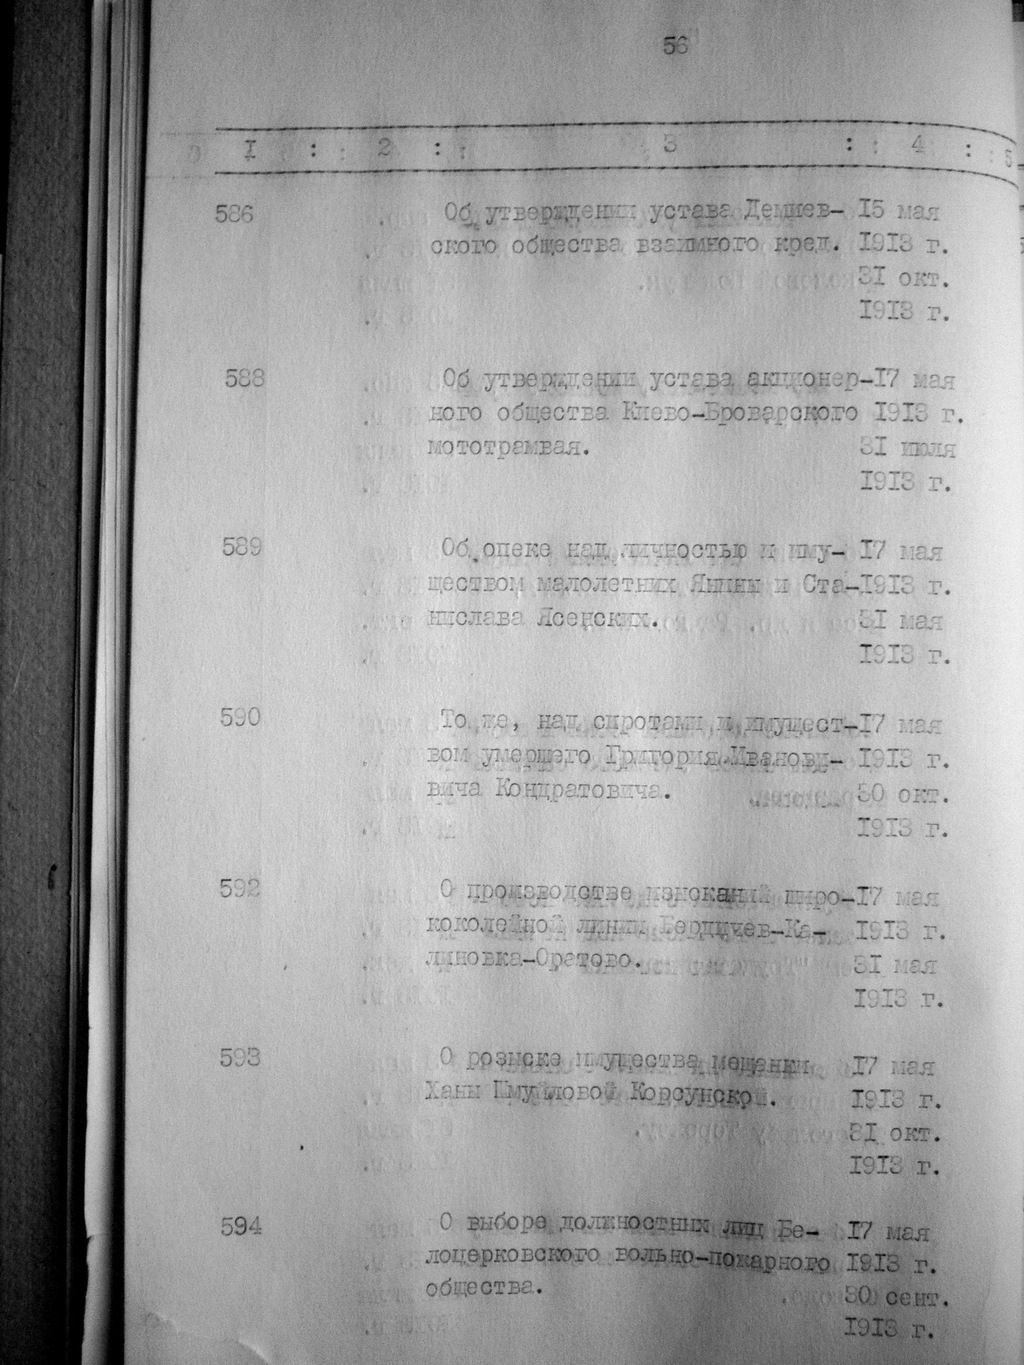 56
I : 2 : 3 : 4 : 5
586 Об утверждении устава Демиев- I5 мая
ского общества взаимного кред. I9I3 г.
3I окт.
I9I3 г.
588 Об утверждении устава акционер-I7 мая
ного общества Киево-Броварского I9I3 г.
мототрамвая. 3I июля
I9I3 г.
589 Об опеке над личностью и иму- I7 мая
ществом малолетних Янины и Ста-I9I3 г.
нислава Ясенских. 3I мая
I9I3 г.
590 То же, над сиротами и имущест-I7 мая
вом умершего Григория Иванови- I9I3 г.
вича Кондратовича. 30 окт.
I9I3 г.
592 О производстве изысканий широ-I7 мая
коколейной линии Бердичев-Ка- I9I3 г.
линовка-Оратово. 3I мая
I9I3 г.
593 О розыске имущества мещанки I7 мая
Ханы Шмуйловой Корсунской. I9I3 г.
3I окт.
I9I3 г.
594 О выборе должностных лиц Бе- I7 мая
лоцерковского вольно-пожарного I9I3 г.
общества. 30 сент.
I9I3 г.